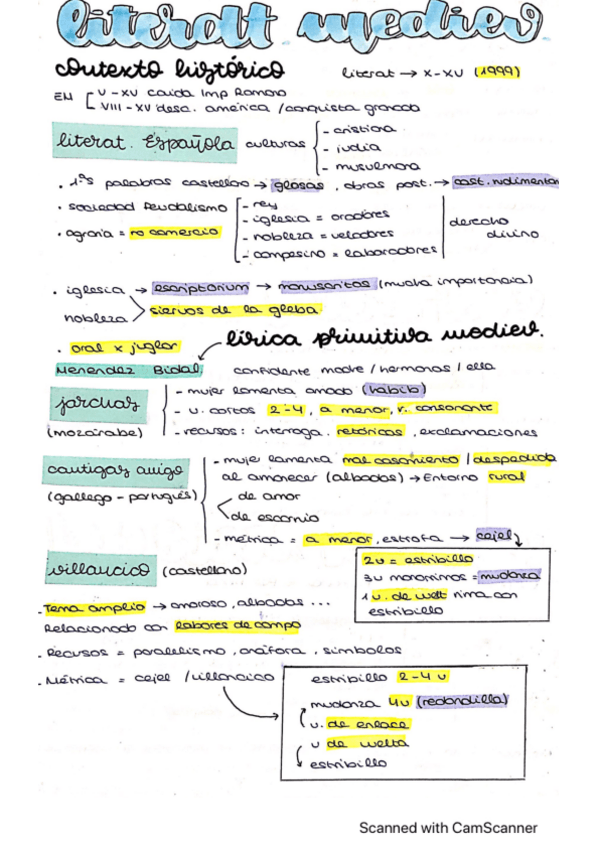 literat. mediev.
contexto histórico literat → X-XV (1999)
EM V-XV caida Imp Romano
VIII-XV desc. américa / conquista granada
literat. Española culturas - cristiana
- judia
- musulmana
. 1ªs palabras castellano → glosas . obras post. → cast. rudimentar
. sociedad feudalismo - rey
- iglesia = oradores
. agraria = no comercio - nobleza = veladores
- campesino = laboradores
derecho
divino
. iglesia → escriptorium → manuscritos (mucha importancia)
nobleza siervos de la gleba
lírica primitiva mediev.
. oral x juglar
Menendez Bidal confidente madre / hermanas / ella
jarchas - mujer lamenta amado (habib)
- v. cortos 2-4, a menor, r. consonante
(mozárabe) - recursos: interroga. retóricas, exclamaciones
cantigas amigo - mujer lamenta mal casamiento / despedida
al amanecer (albadas) → Entorno rural
(gallego-portugués) de amor
de escarnio
- métrica = a menor, estrofa → cejel
villancico (castellano)
2v = estribillo
3v monorrimos = mudanza
1 v. de vuelt rima con
estribillo
. Tema amplio → amoroso, albadas ...
Relacionado con labores de campo
. Recursos = paralelismo, anáfora, símbolos
. Métrica = cejel / villancico
estribillo 2-4 v
mudanza 4v (redondilla)
v. de enlace
v de vuelta
estribillo
Scanned with CamScanner